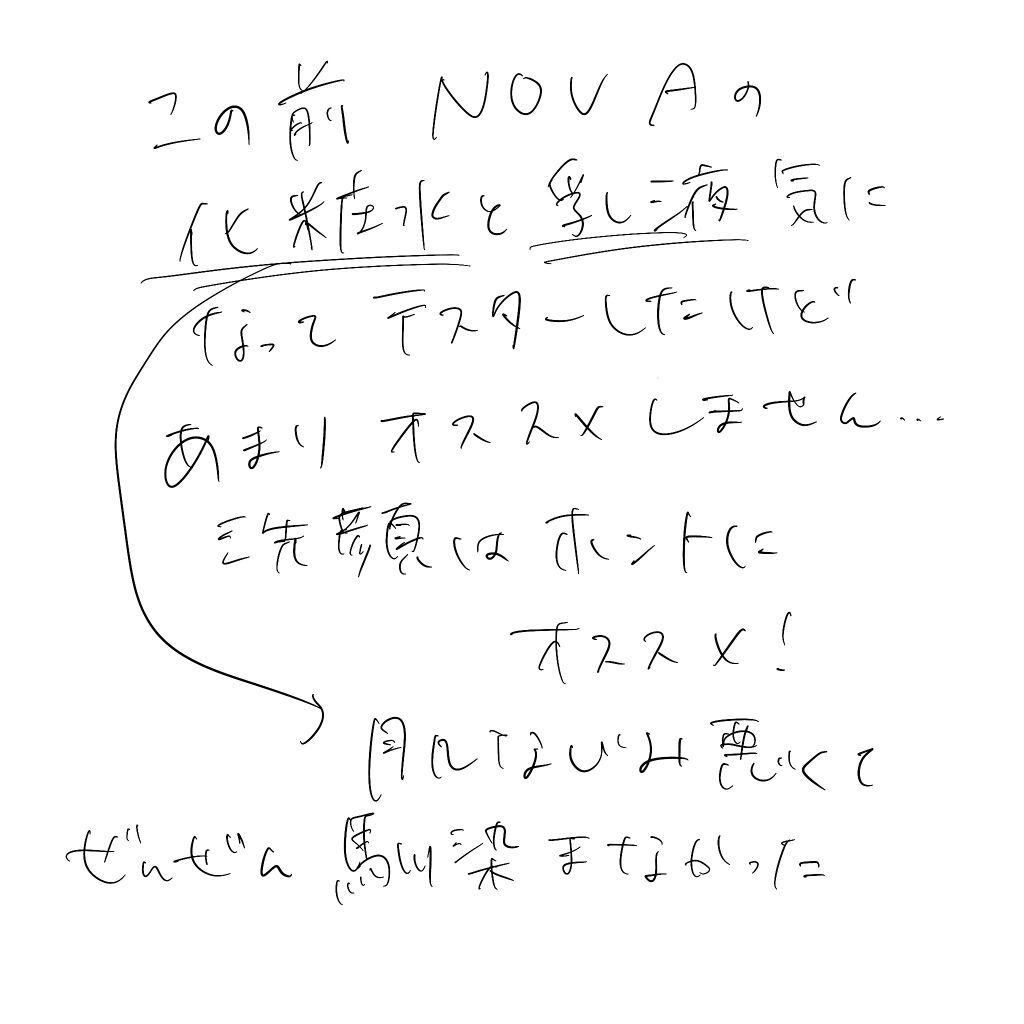 この前 NOVAの
化粧水と乳液気に
なってテスターしたけど
あまりオススメしません…
洗顔はホントに
オススメ!
肌なじみ悪くて
ぜんぜん馴染まなかった